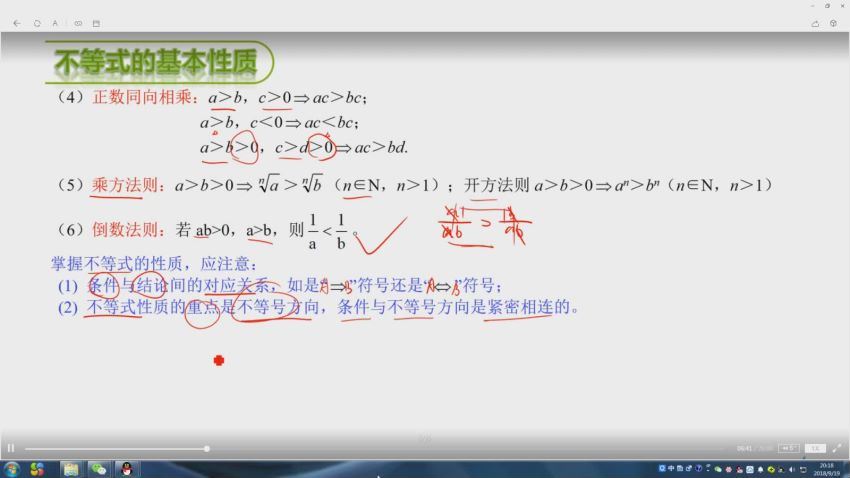 不等式的基本性质
（4）正数同向相乘：a＞b，c＞0⇒ac＞bc；
a＞b，c＜0⇒ac＜bc；
a＞b＞0，c＞d＞0⇒ac＞bd.
（5）乘方法则：a＞b＞0⇒ⁿ√a＞ⁿ√b（n∈N，n＞1）；开方法则 a＞b＞0⇒aⁿ＞bⁿ（n∈N，n＞1）
（6）倒数法则：若 ab>0，a>b，则 1/a < 1/b 。
掌握不等式的性质，应注意：
(1) 条件与结论间的对应关系，如是“⇒”符号还是“⇔”符号；
(2) 不等式性质的重点是不等号方向，条件与不等号方向是紧密相连的。
06:41
1X
20:18
2018/9/19